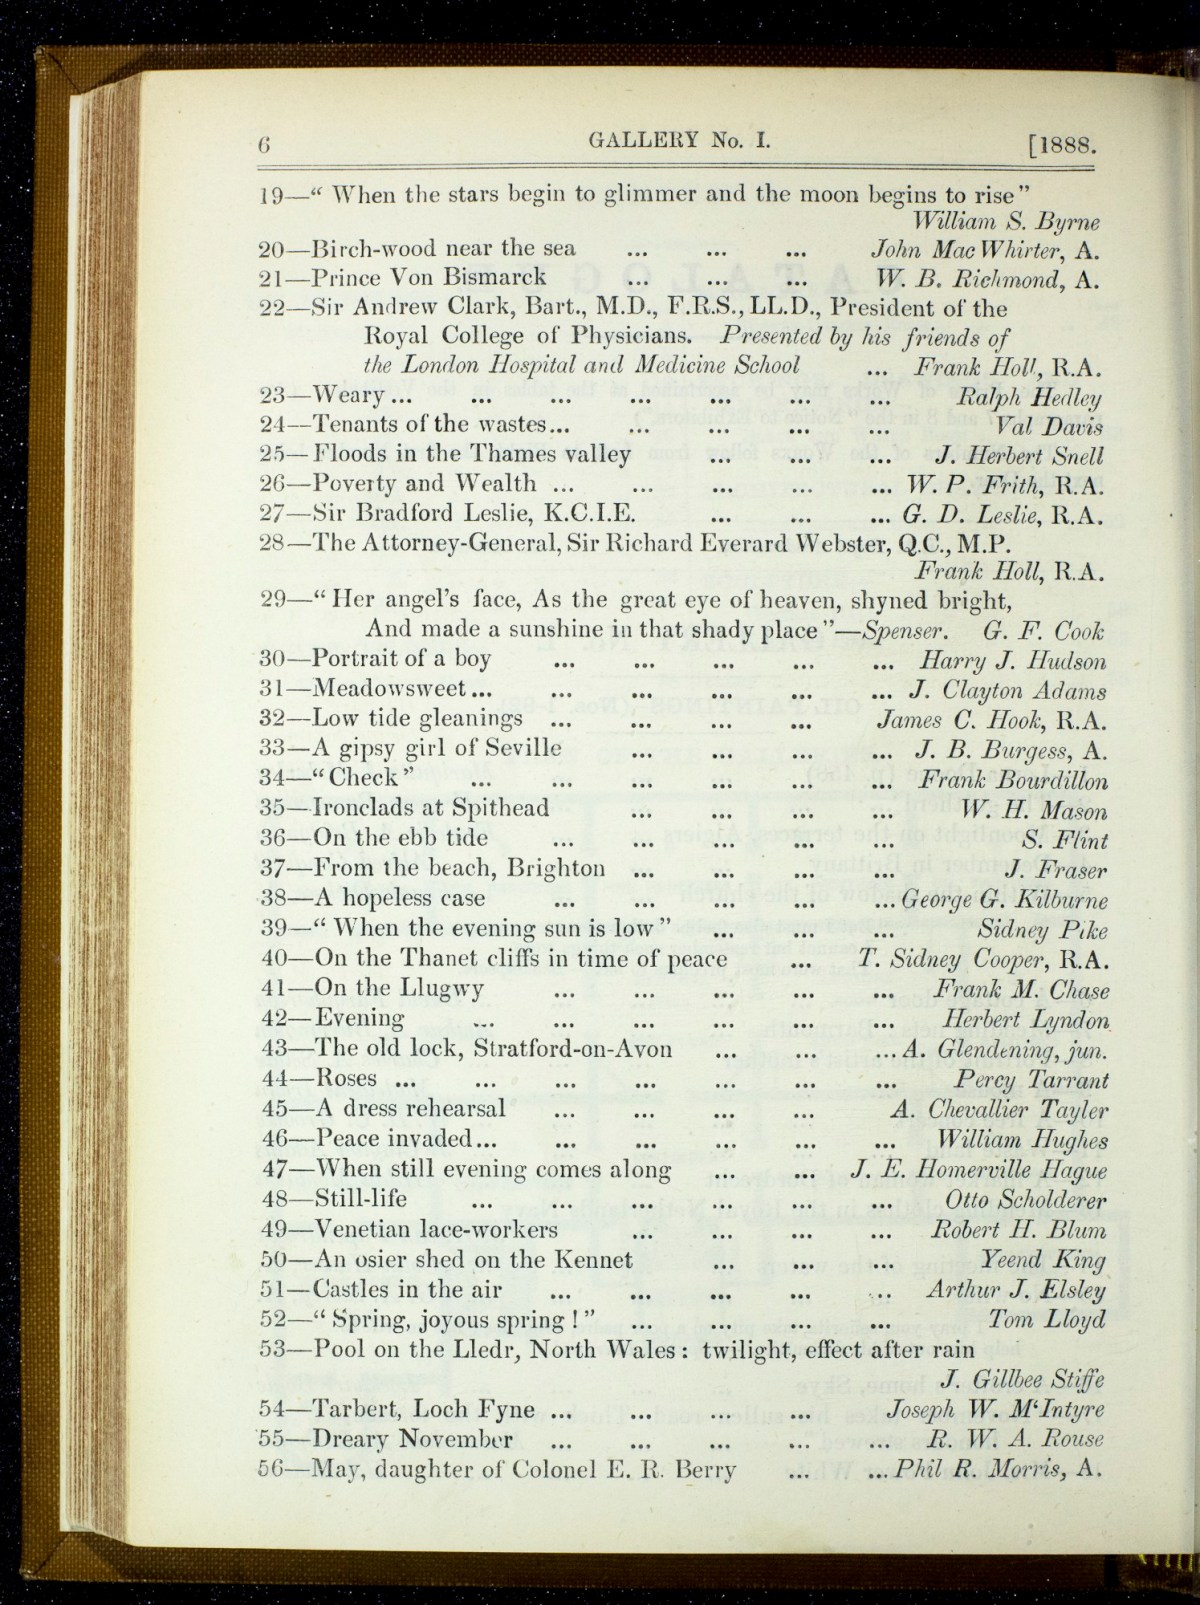 6 GALLERY No. I. [1888.
19—“ When the stars begin to glimmer and the moon begins to rise”
William S. Byrne
20—Birch-wood near the sea ... ... ... John MacWhirter, A.
21—Prince Von Bismarck ... ... ... W. B. Richmond, A.
22—Sir Andrew Clark, Bart., M.D., F.R.S., LL.D., President of the
Royal College of Physicians. Presented by his friends of
the London Hospital and Medicine School ... Frank Holl, R.A.
23—Weary ... ... ... ... ... ... ... Ralph Hedley
24—Tenants of the wastes... ... ... ... ... Val Davis
25—Floods in the Thames valley ... ... ... J. Herbert Snell
26—Poverty and Wealth ... ... ... ... ... W. P. Frith, R.A.
27—Sir Bradford Leslie, K.C.I.E. ... ... ... G. D. Leslie, R.A.
28—The Attorney-General, Sir Richard Everard Webster, Q.C., M.P.
Frank Holl, R.A.
29—“ Her angel's face, As the great eye of heaven, shyned bright,
And made a sunshine in that shady place”—Spenser. G. F. Cook
30—Portrait of a boy ... ... ... ... ... Harry J. Hudson
31—Meadowsweet... ... ... ... ... ... J. Clayton Adams
32—Low tide gleanings ... ... ... ... James C. Hook, R.A.
33—A gipsy girl of Seville ... ... ... ... J. B. Burgess, A.
34—“Check” ... ... ... ... ... ... Frank Bourdillon
35—Ironclads at Spithead ... ... ... ... W. H. Mason
36—On the ebb tide ... ... ... ... ... S. Flint
37—From the beach, Brighton ... ... ... ... J. Fraser
38—A hopeless case ... ... ... ... ... George G. Kilburne
39—“ When the evening sun is low” ... ... ... Sidney Pike
40—On the Thanet cliffs in time of peace ... T. Sidney Cooper, R.A.
41—On the Llugwy ... ... ... ... ... Frank M. Chase
42—Evening ... ... ... ... ... ... Herbert Lyndon
43—The old lock, Stratford-on-Avon ... ... ... A. Glendening, jun.
44—Roses ... ... ... ... ... ... ... Percy Tarrant
45—A dress rehearsal ... ... ... ... A. Chevallier Tayler
46—Peace invaded... ... ... ... ... ... William Hughes
47—When still evening comes along ... ... J. E. Homerville Hague
48—Still-life ... ... ... ... ... ... Otto Scholderer
49—Venetian lace-workers ... ... ... ... Robert H. Blum
50—An osier shed on the Kennet ... ... ... Yeend King
51—Castles in the air ... ... ... ... ... Arthur J. Elsley
52—“ Spring, joyous spring !” ... ... ... ... Tom Lloyd
53—Pool on the Lledr, North Wales : twilight, effect after rain
J. Gillbee Stiffe
54—Tarbert, Loch Fyne ... ... ... ... Joseph W. M‘Intyre
55—Dreary November ... ... ... ... ... R. W. A. Rouse
56—May, daughter of Colonel E. R. Berry ... ... Phil R. Morris, A.